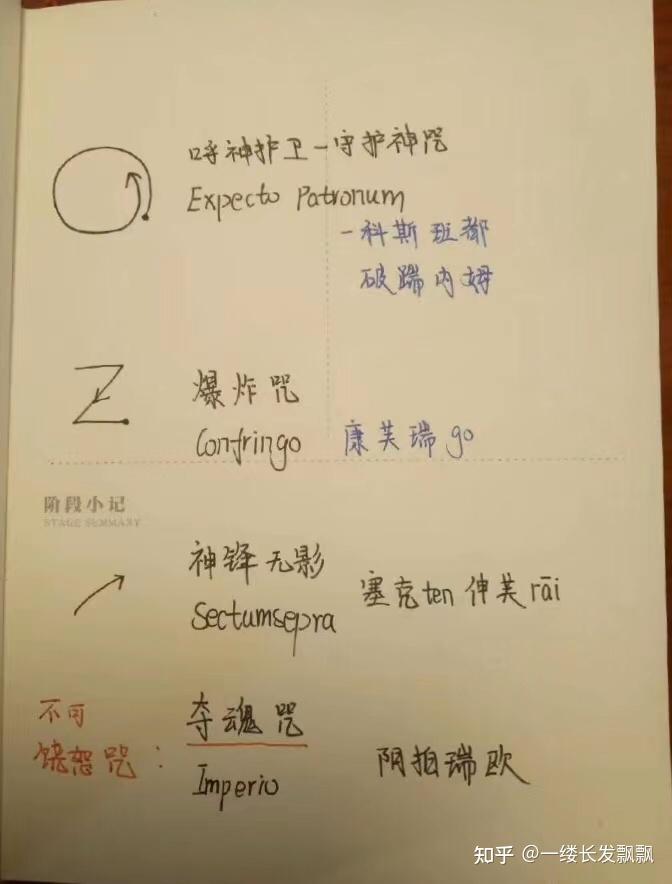 呼神护卫－守护神咒
Expecto Patronum
一科斯班都
破踹内姆
爆炸咒
Confringo 康芙瑞go
阶段小记
STAGE SUMMARY
神锋无影
Sectumsepra 塞克ten伸芙rāi
不可
饶恕咒：
夺魂咒
Imperio 阴拍瑞欧
知乎 @一缕长发飘飘